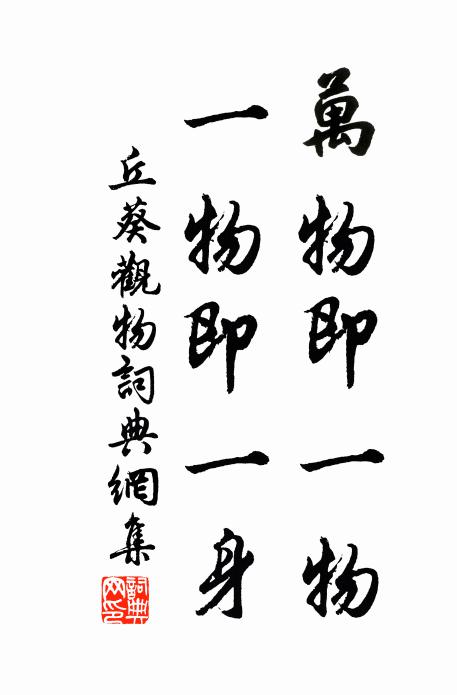 萬物即一物
一物即一身
丘葵觀物詞典網集
詞典網印